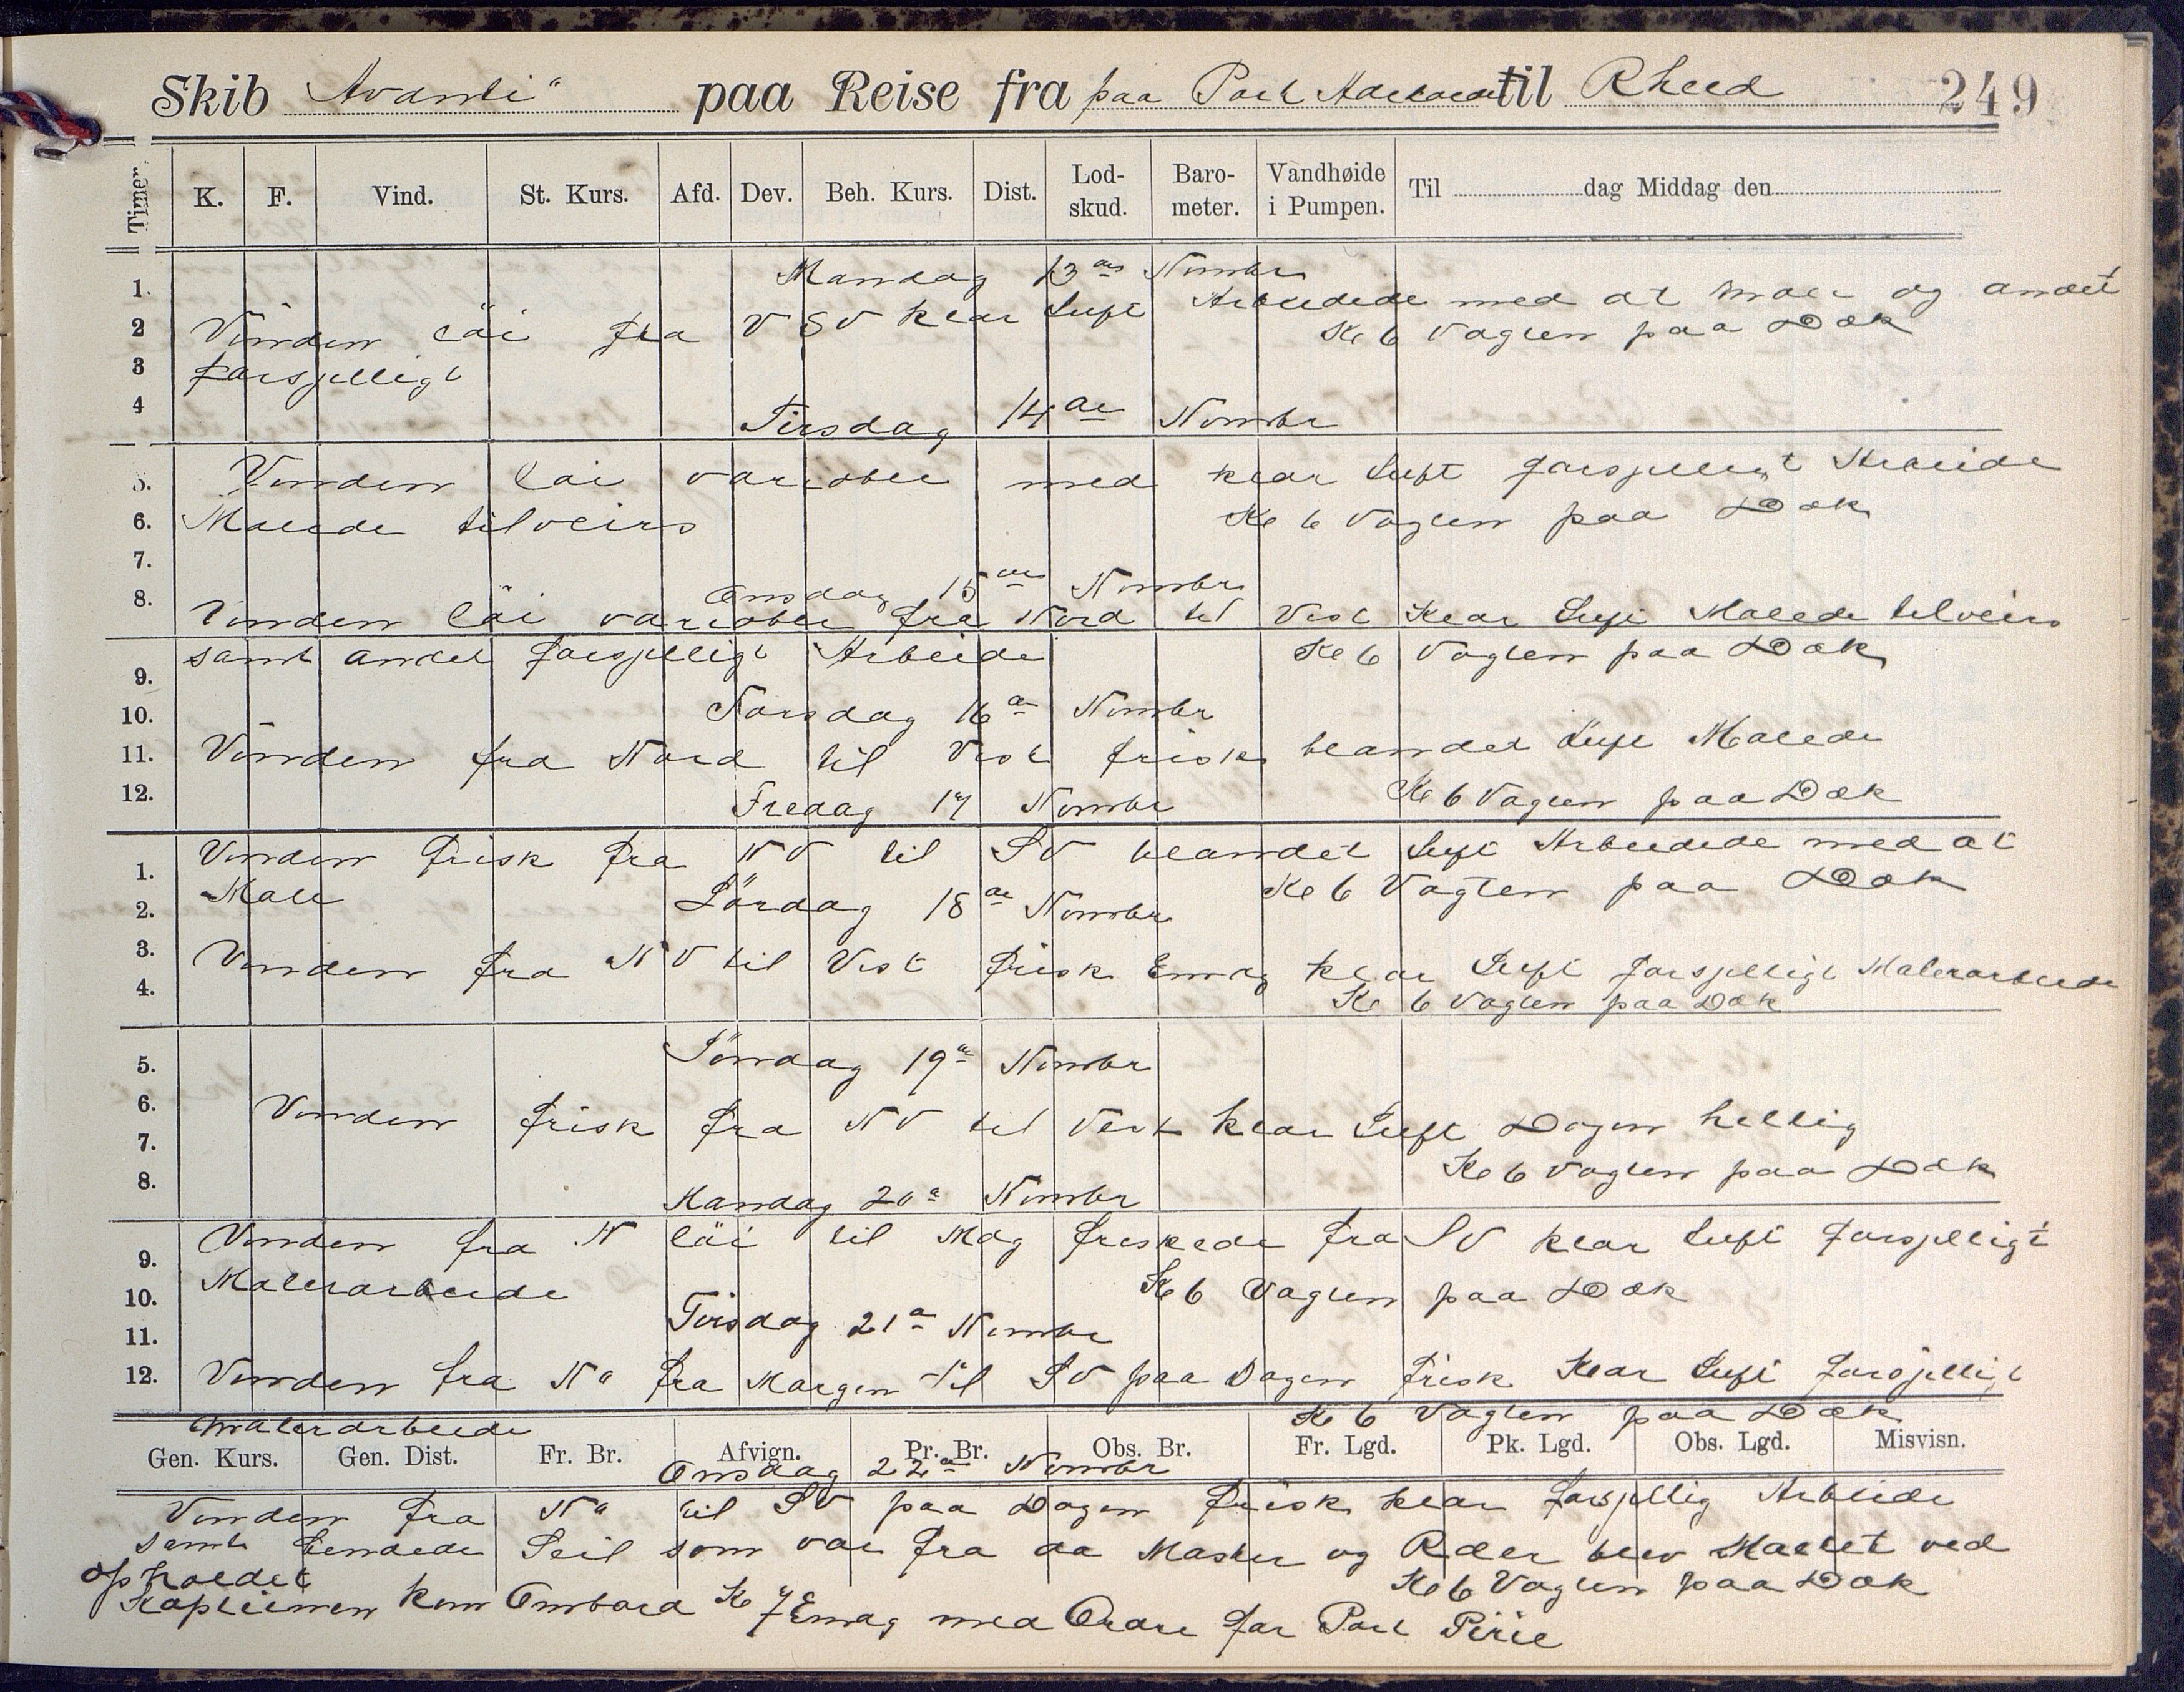 Skib Avanti" paa Reise fra paa Port til Rhed 249
Timer. K. F. Vind. St. Kurs. Afd. Dev. Beh. Kurs. Dist. Lod-skud. Baro-meter. Vandhøide i Pumpen. Til dag Middag den
1. Mandag 13 Novmbr
2 Vinden löi fra VSV klar Luft Arbeidede med at male og andet
3 forsjelligt Kl 6 Vagten paa Dæk
4 Tirsdag 14de Novmbr
5. Vinden löi variabel med klar Luft forsjelligt Arbeide
6. Malede tilveirs Kl 6 Vagten paa Dæk
7.
8. Onsdag 15 Novmbr
Vinden löi variabel fra Nord til Vest Klar Luft Malede tilveirs
9. samt andet forsjelligt Arbeide Kl 6 Vagten paa Dæk
10. Torsdag 16 Novmbr
11. Vinden fra Nord til Vest frisk blandet Luft Malede
12. Fredag 17 Novmbr Kl 6 Vagten paa Dæk
1. Vinden frisk fra NV til SV blandet Luft Arbeidede med at
2. Male Lördag 18 Novmbr Kl 6 Vagten paa Dæk
3. Vinden fra NV til Vest frisk Emdg klar Luft forsjelligt Malerarbeide
4. Kl 6 Vagten paa Dæk
5. Söndag 19 Novmbr
6. Vinden frisk fra NV til Vest klar Luft Dagen hellig
7. Kl 6 Vagten paa Dæk
8. Mandag 20 Novmbr
9. Vinden fra N löi til Mdg friskede fra SV klar Luft forsjelligt
10. Malerarbeide Kl 6 Vagten paa Dæk
11. Tirsdag 21 Novmbr
12. Vinden fra N" fra Morgen til SV paa Dagen frisk Klar Luft forsjelligt
Malerarbeide Kl 6 Vagten paa Dæk
Gen. Kurs. Gen. Dist. Fr. Br. Afvign. Pr. Br. Obs. Br. Fr. Lgd. Pk. Lgd. Obs. Lgd. Misvisn.
Onsdag 22 Novmbr
Vinden fra N" til SV paa Dagen frisk klar forsjellig Arbeide
samt bendede Seil som var fra da Master og Ræer blev Malet ved
opholdet Kl 6 Vagten paa Dæk
Kapteinen kom Ombord Kl 7 Emdg med Ordre for Port Pirie